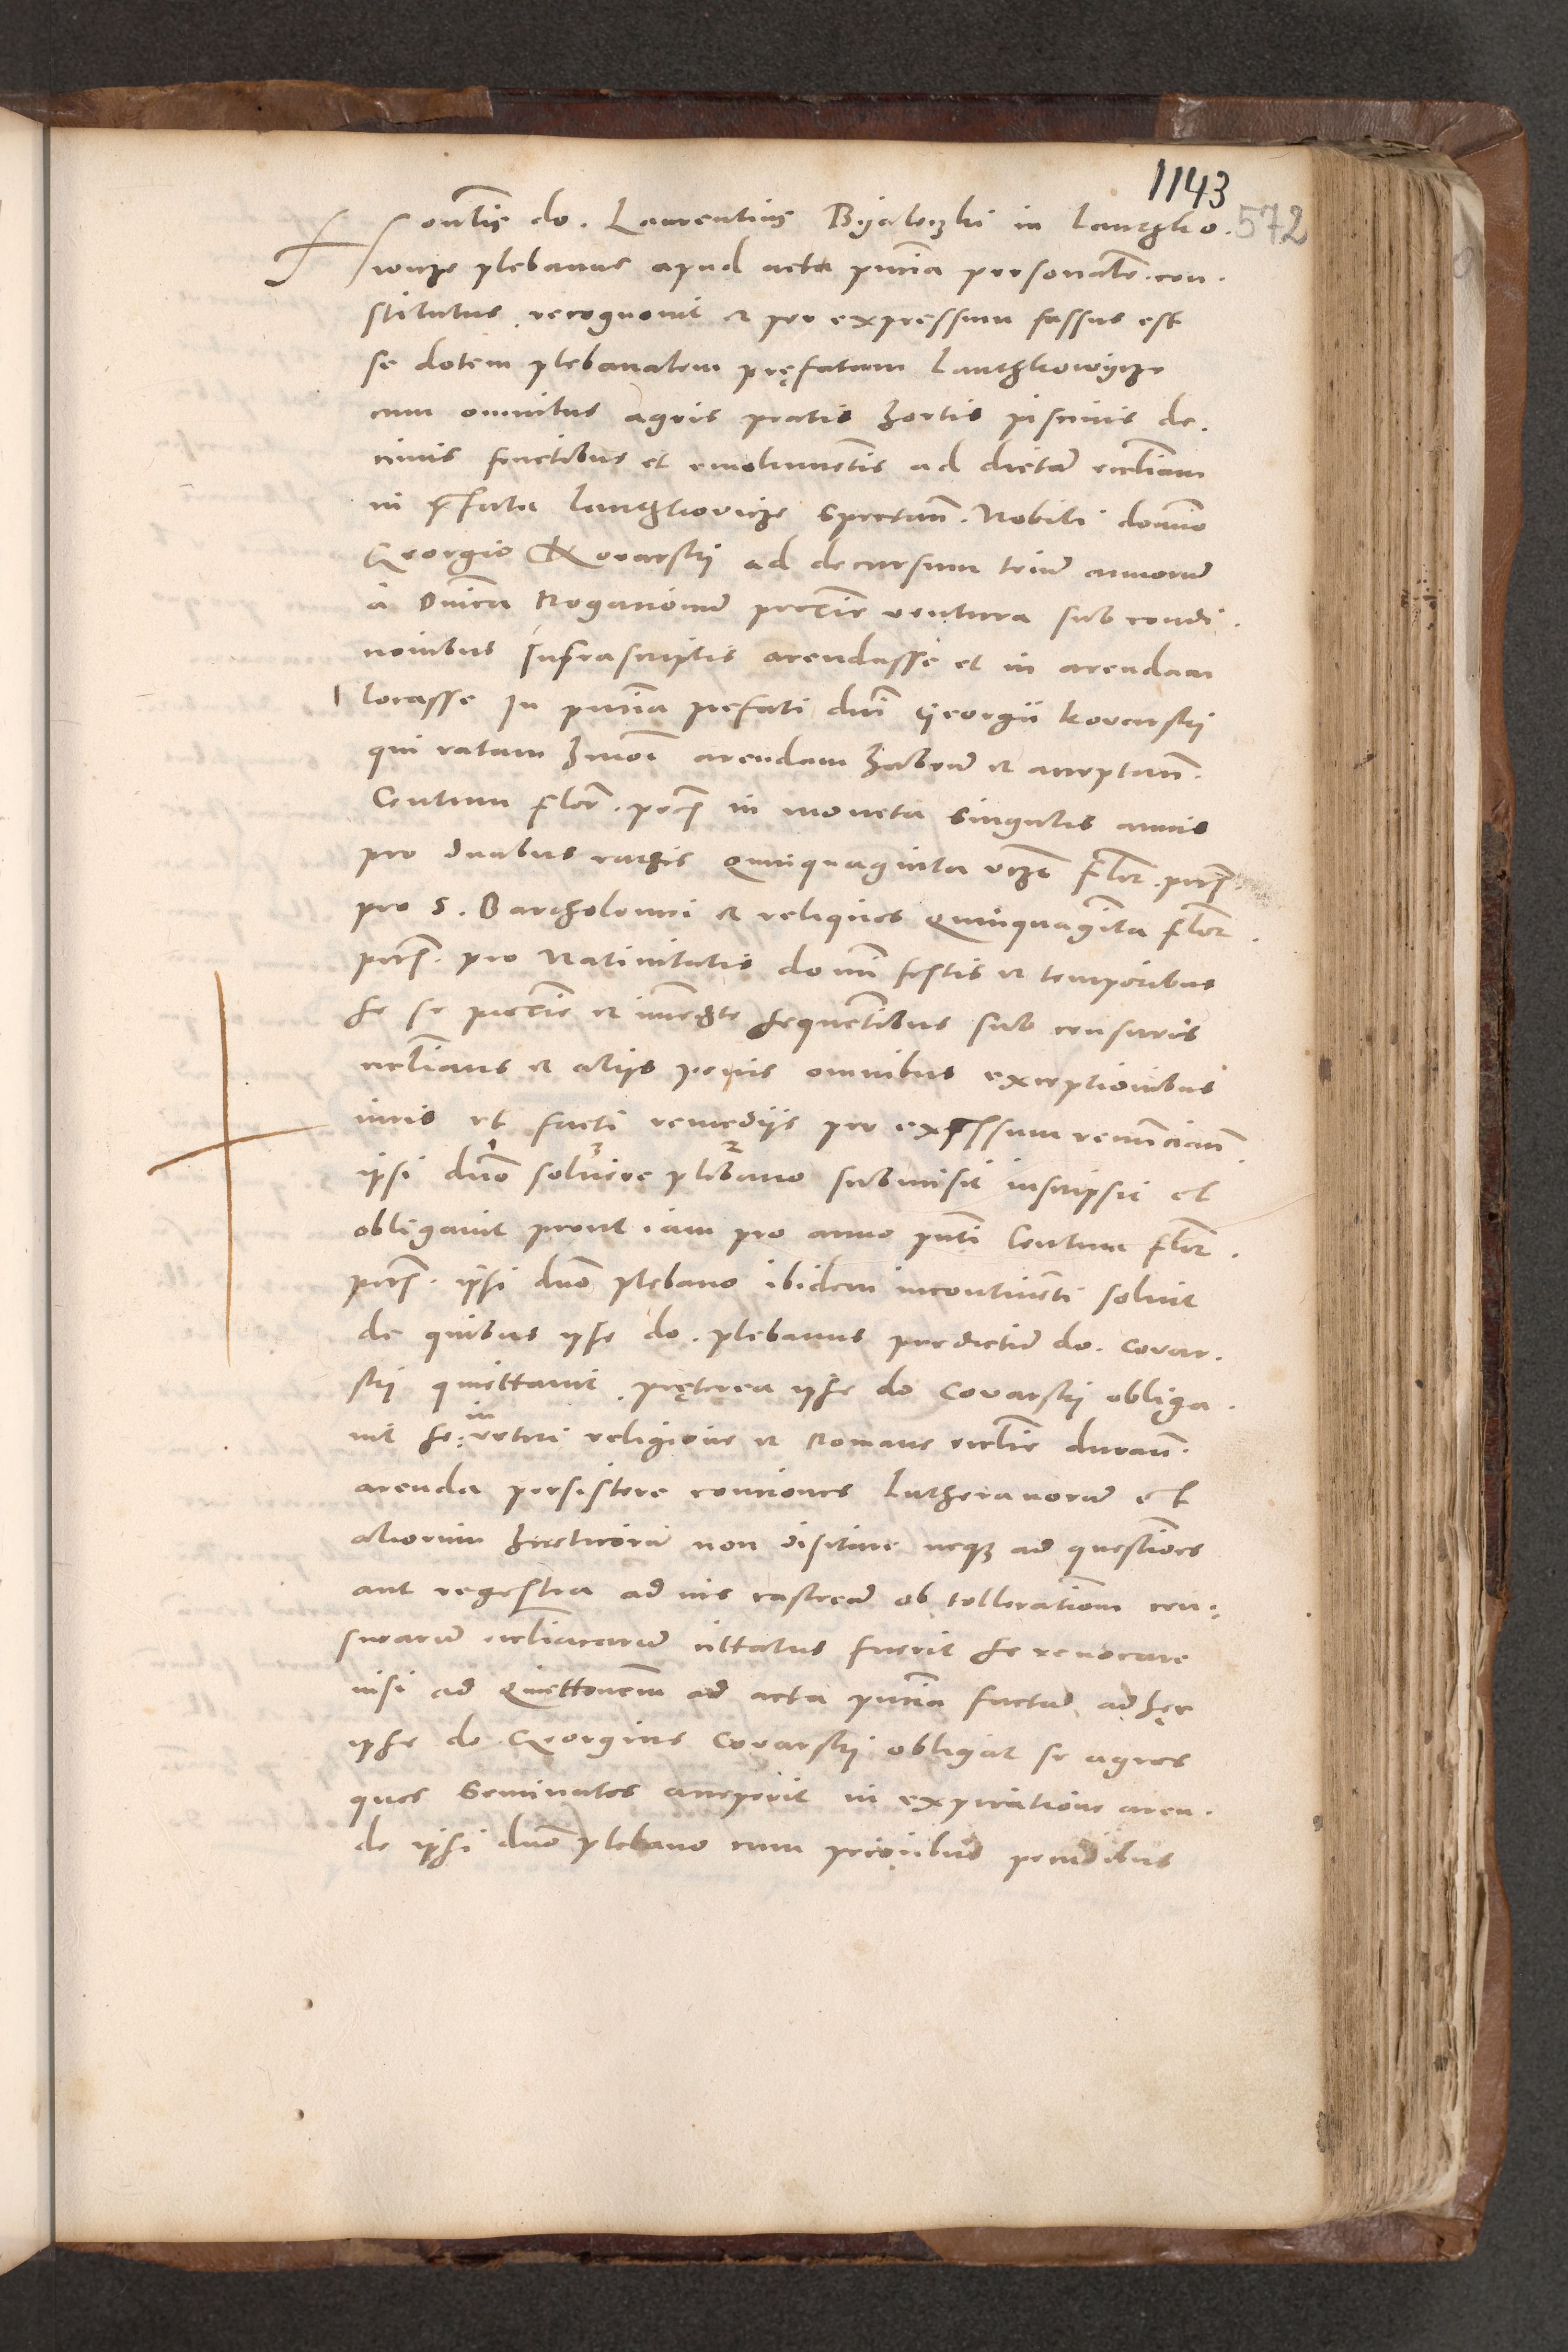 1143
572
ontis do. Laurentius Byaleczki in Lanczko.
vicze plebanus apud acta pntia personalr. con.
stitutus recognovit et per expressum fassus est
se dotem plebanalem pręfatam Lanczkowycze
cum omnibus agris pratis hortis piscinis de.
cimis fructibus et emolumentis ad dictā eccliam
in prefata Lanczkovicze spectan. Nobili domino
Georgio Kovarski ad decursum triū annorum
a dnica Rogationum proxime ventura sub condi.
tionibus infrascriptis arendasse et in arendam
locasse In pntia prefati dni Georgii Kovarski
qui ratam hmoi arendam habens et acceptans.
Centum flor. pecs in moneta singulis annis
pro duabus rathis quinquaginta vcz flor. pecs.
pro S. Bartholomei et reliquos quinquaginta flor.
pecs. pro Nativitatis domini festis et temporibus
se proxime et immedte sequentibus sub censuris
eccliasticis et aliis penis omnibus exceptionibus
iuris et facti remediis per expressum renuncians
ipsi dno solvere plebano submisit inscripsit et
obligavit prout iam pro anno pnti Centum flor.
pecs. ipsi dno plebano ibidem incontinenti solvit
de quibus ipse do. plebanus predictum do. Covar.
ski quiettavit. pręterea ipse do Covarski obliga.
vit se in veteri religione et Romane ecclie duran.
arenda persistere conciones Lutheranorum et
aliorum hereticorum non visitare neqz ad questiones
aut regestra ad ius castren ob tollerationem cen:
surarum ecliacarum cittatus fuerit se revocare
nisi ad quiettonem ad acta pntia factam adhęc
ipse do Georgius Covarski obligat se agros
quos seminatos acceperit in expiratione aren.
de ipsi dno plebano cum pecoribus pecudibus